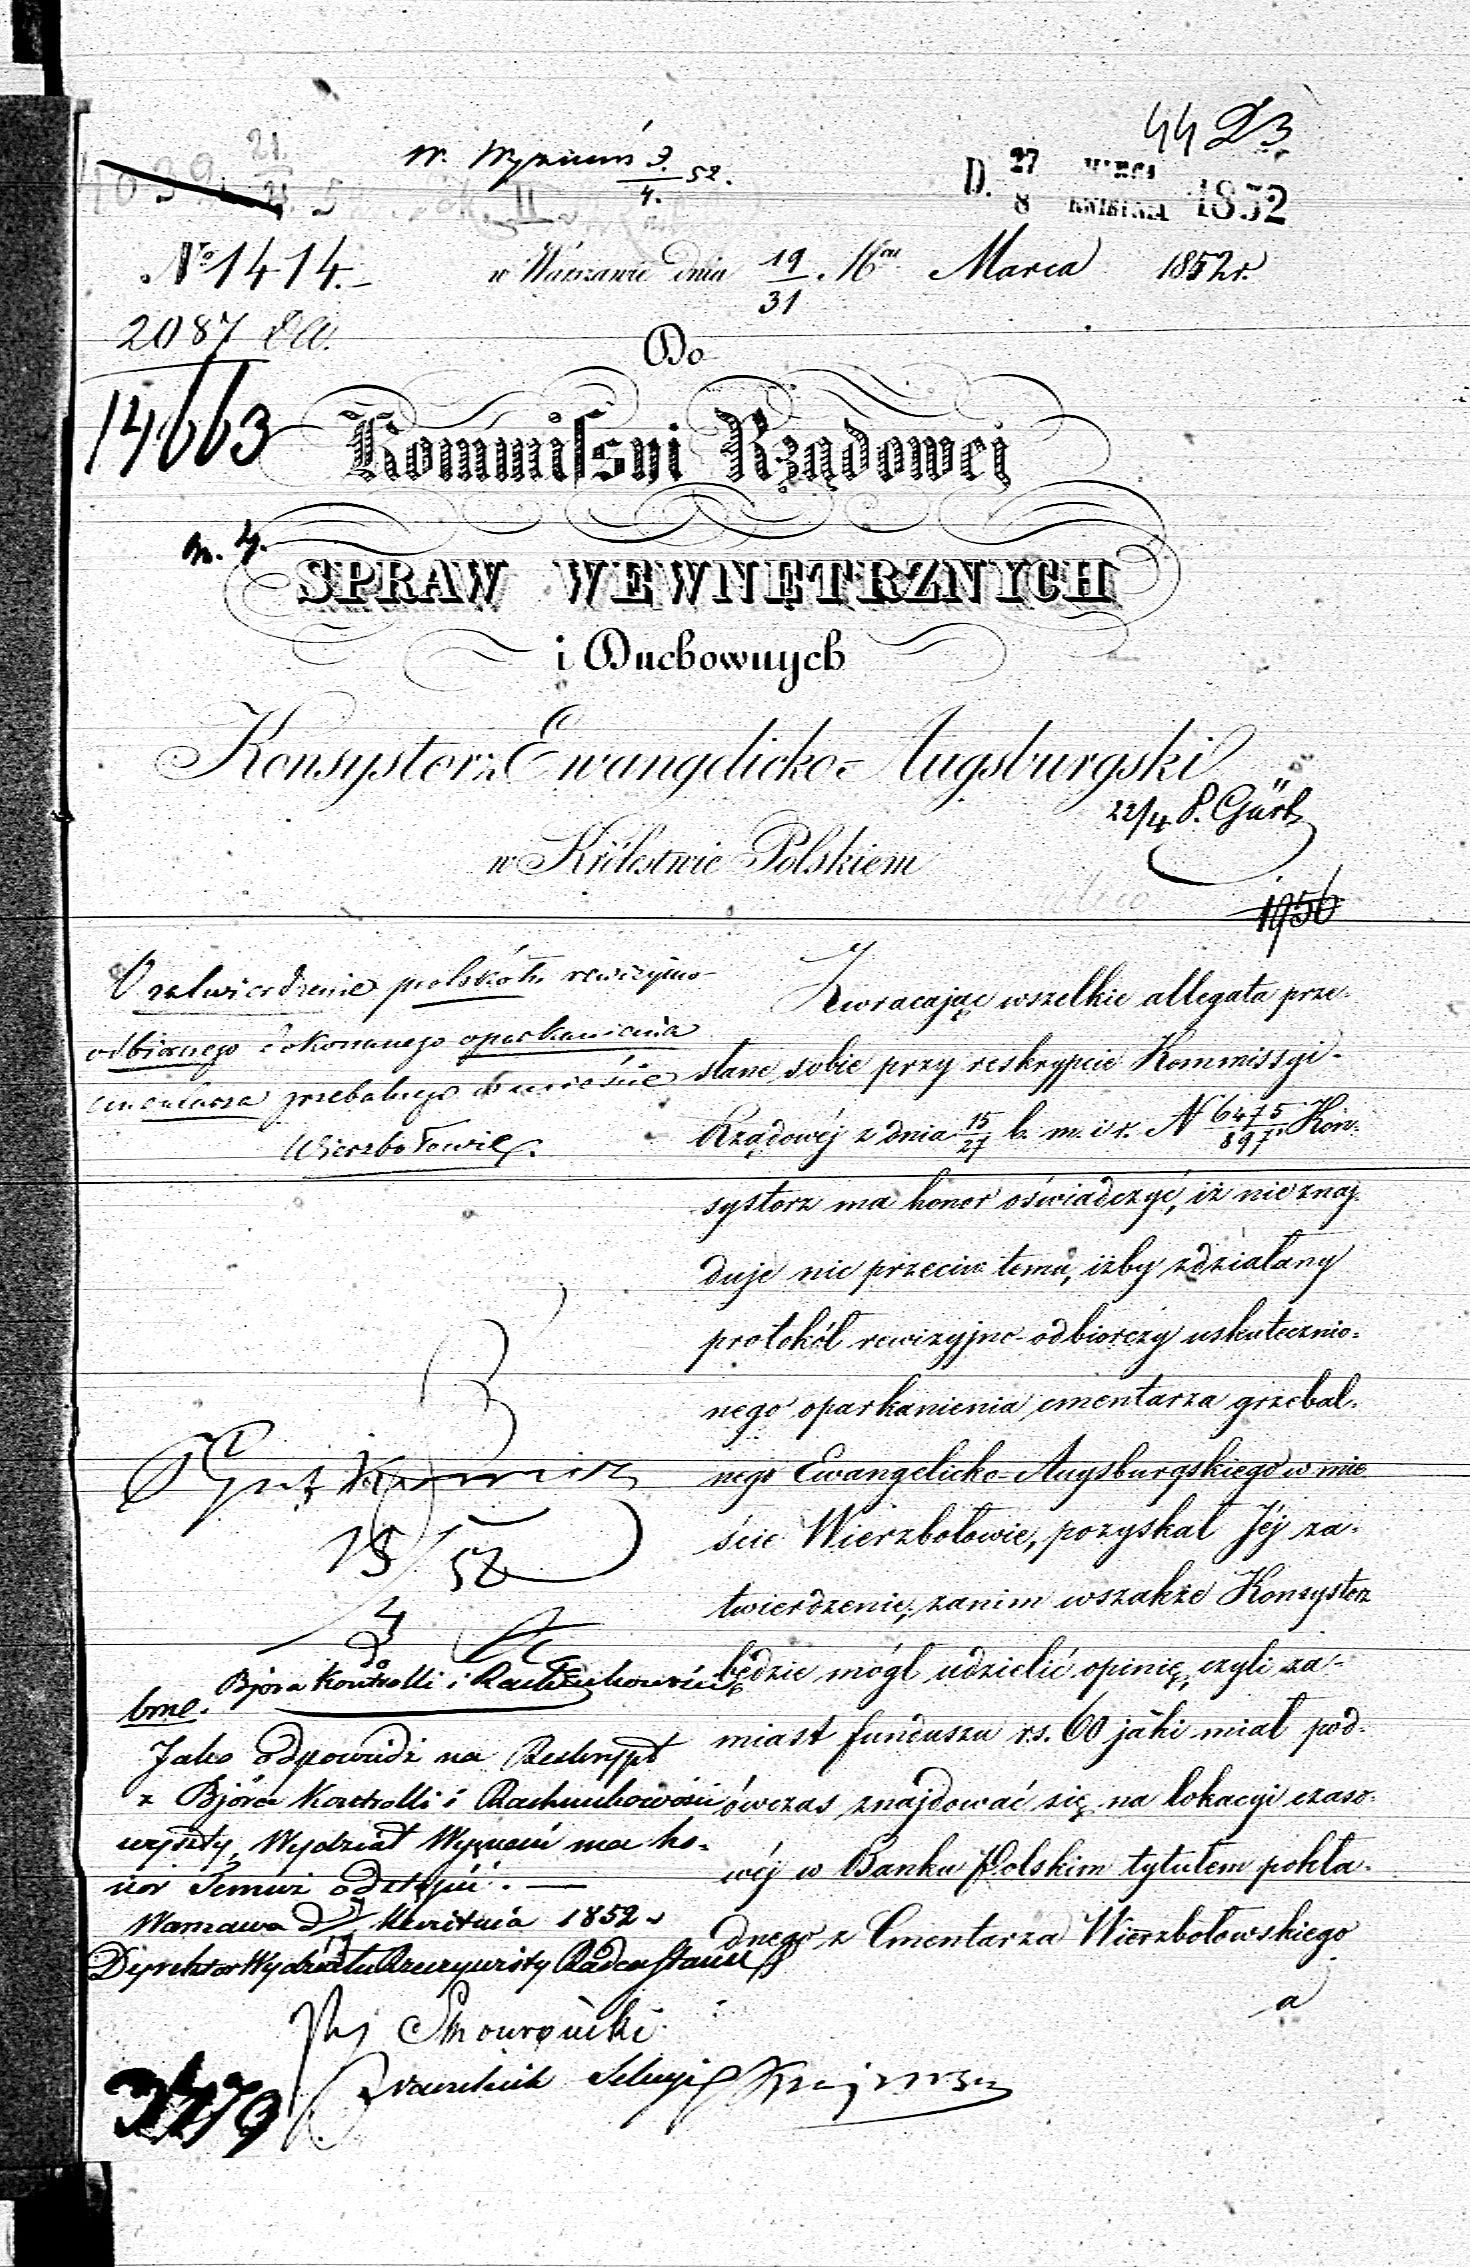 44
W. Wyznań 3/4. 52.
D. 27 MARCA
8 KWIETNIA 1852
No 1414.
w Warszawie dnia 19/31 Marca 1852 r.
2087
14663
Do
Kommissyi Rządowej
SPRAW WEWNĘTRZNYCH
i Duchownych
Konsystorz Ewangelicko-Augsburgski
22/4
w Królestwie Polskiem
1956
O zatwierdzenie protokółu rewizyjno-
odbiorczego dokonanego oparkanienia
cmentarza grzebalnego w mieście
Wierzbołowie.
Zwracając wszelkie allegata prze-
słane sobie przy reskrypcie Kommissyi
Rządowéj z dnia 15/27 b. m. i r. N 6475/897. Kon-
systorz ma honor oświadczyć, iż nieznaj-
duje nic przeciw temu, iżby zdziałany
protokół rewizyjno-odbiorczy uskutecznio-
nego oparkanienia cmentarza grzebal-
nego Ewangelicko-Augsburgskiego w mie-
ście Wierzbołowie, pozyskał Jéj za-
twierdzenie; zanim wszakże Konsystorz
będzie mógł udzielić opinię, czyli za-
miast funduszu rs. 60 jaki miał pod-
ówczas znajdować się na lokacyi czaso-
wéj w Banku Polskim tytułem pokła-
dnego z Cmentarza Wierzbołowskiego
a
15/4 52
do
Bjóra Kontrolli i Rachunkowości
bme.
Jako odpowiedź na Reskrypt
z Bjóra Kontrolli i Rachunkowości
wyszły, Wydział Wyznań ma ho-
nor Temuż odstąpić.
Warszawa d. Kwietnia 1852 r.
Dyrektor Wydziału Rzeczywisty Radca Stanu
Naczelnik Sekcyi
3479